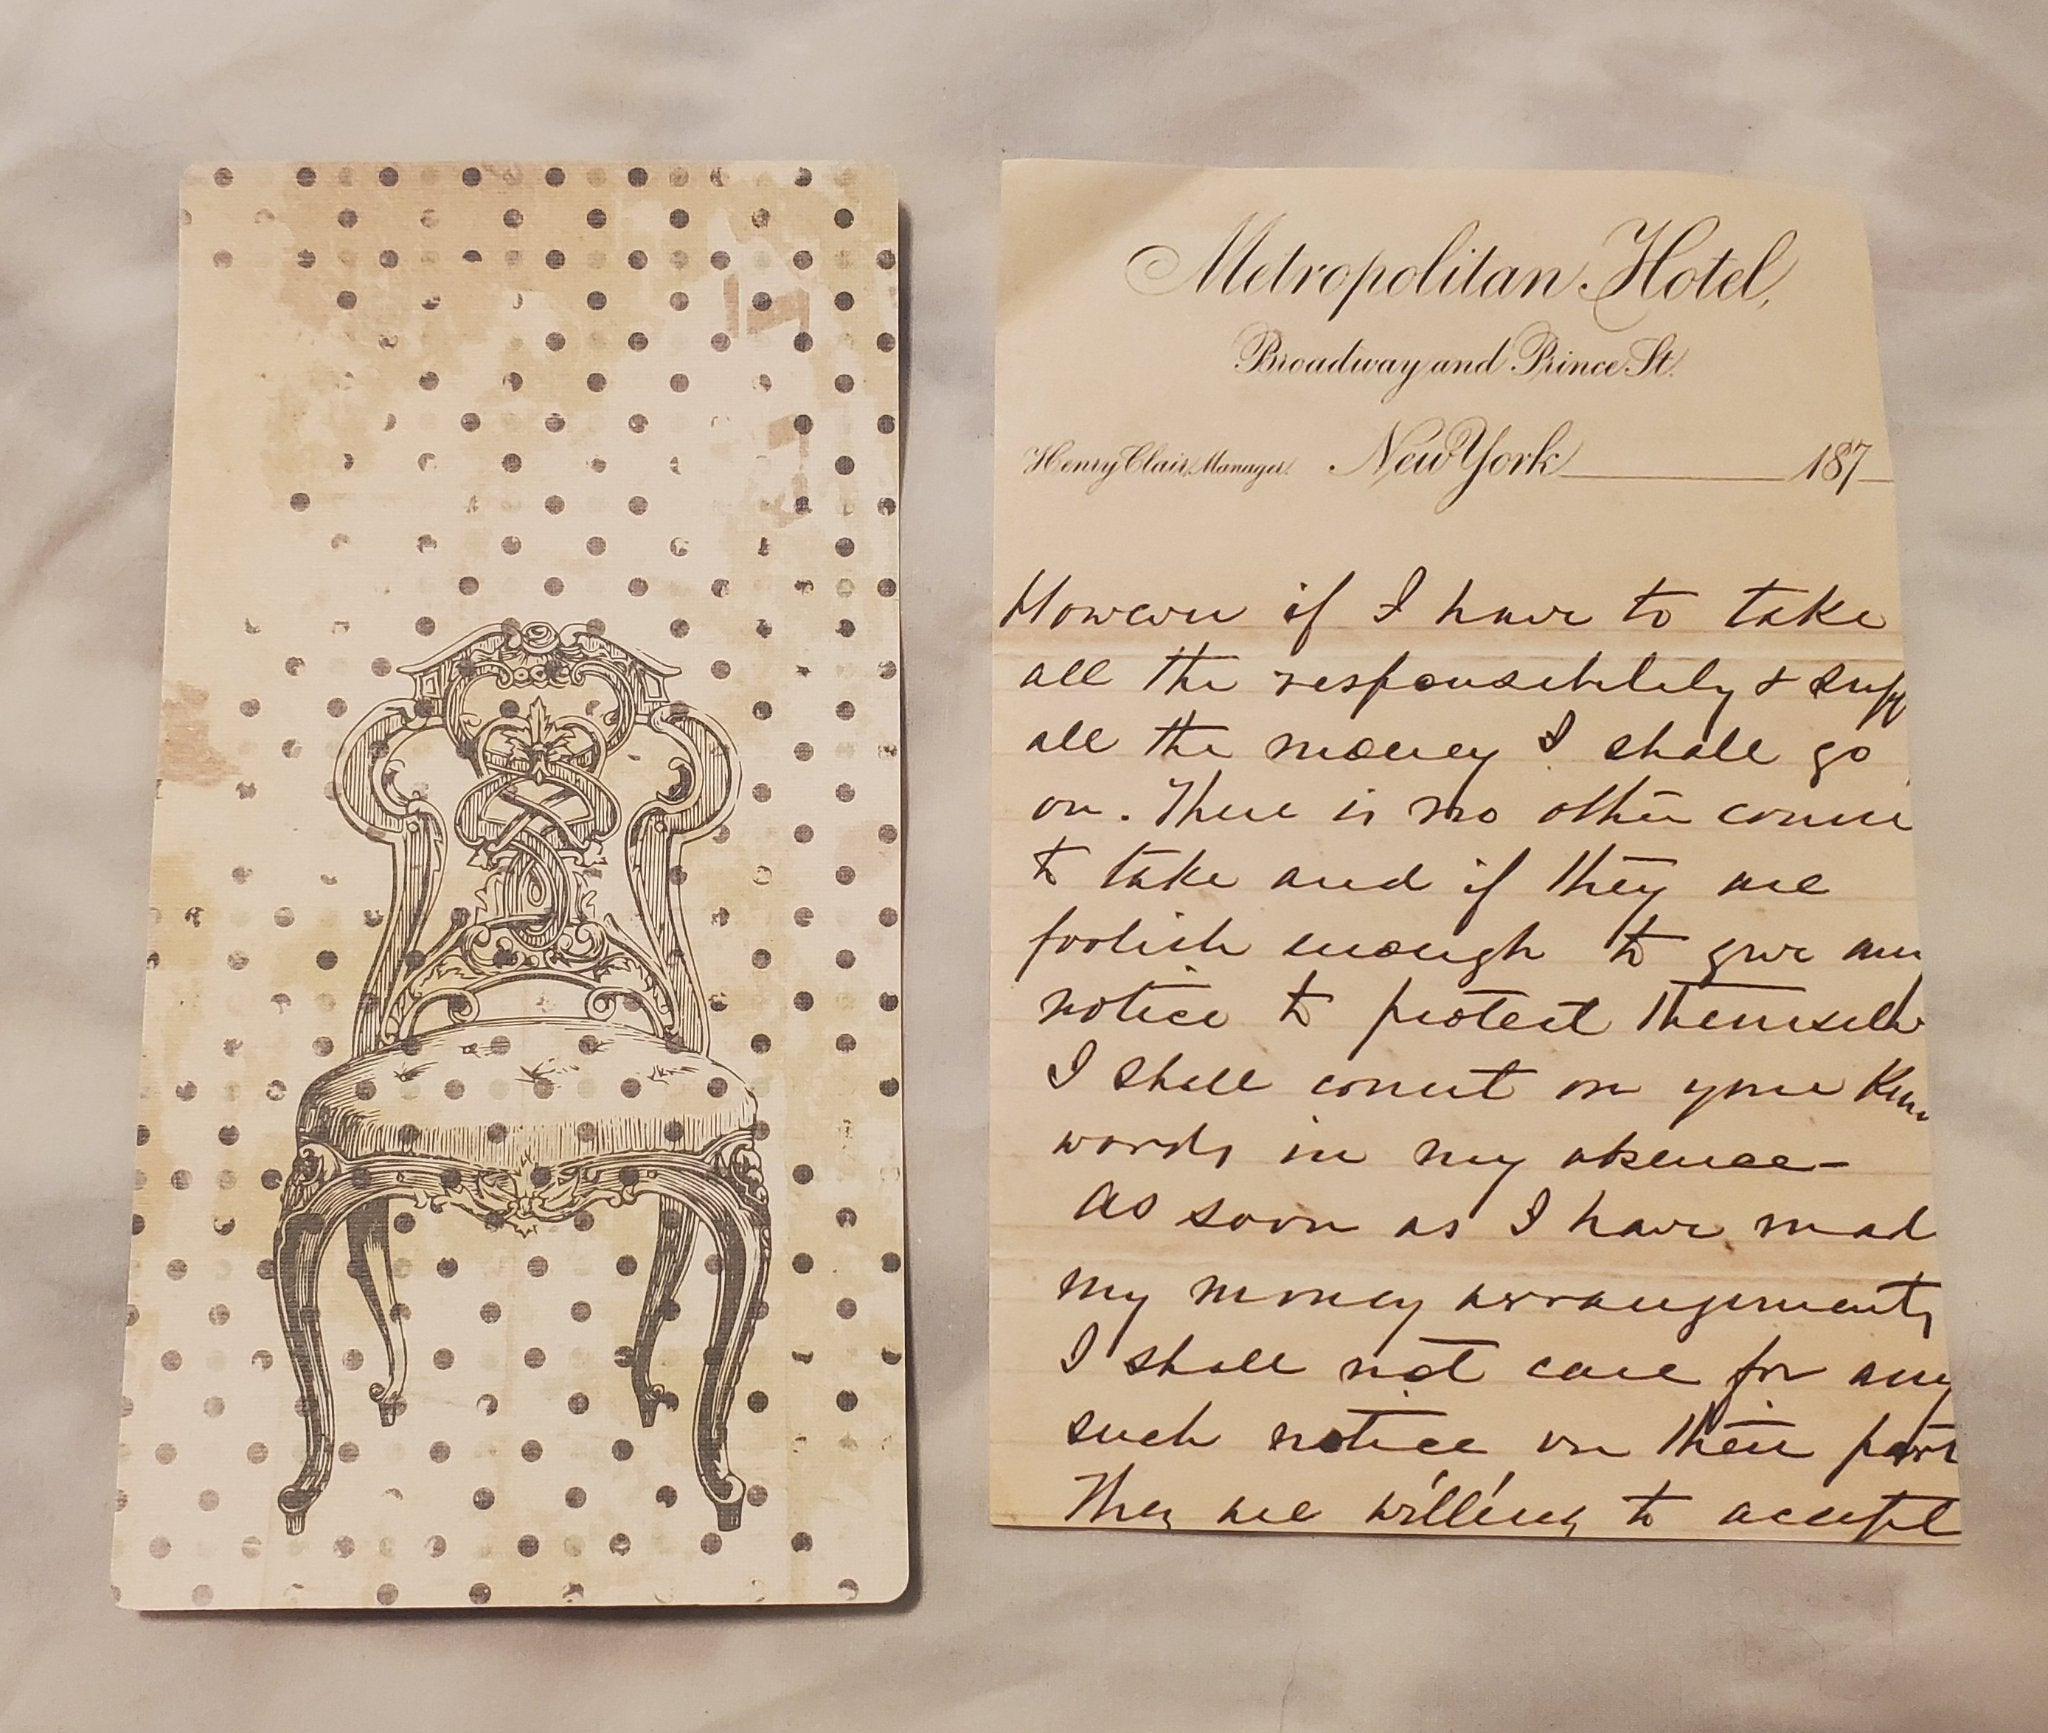 Metropolitan Hotel,
Broadway and Prince St.
Henry Clair, Manager. New York 187
However if I have to take
all the responsibility & supp
all the money I shall go
on. There is no other course
to take and if they are
foolish enough to give any
notice to protect themselv
I shall count on your kin
words in my absence -
As soon as I have mad
my money arrangements
I shall not care for any
such notice on their part
They are willing to accept